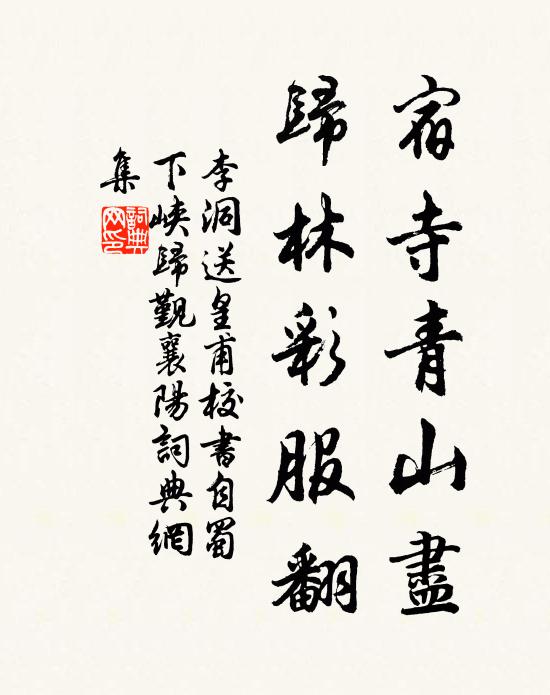 宿寺青山盡
歸林彩服翻
李洞送皇甫校書自蜀
下峽歸觀襄陽詞典網
集
詞典
网印